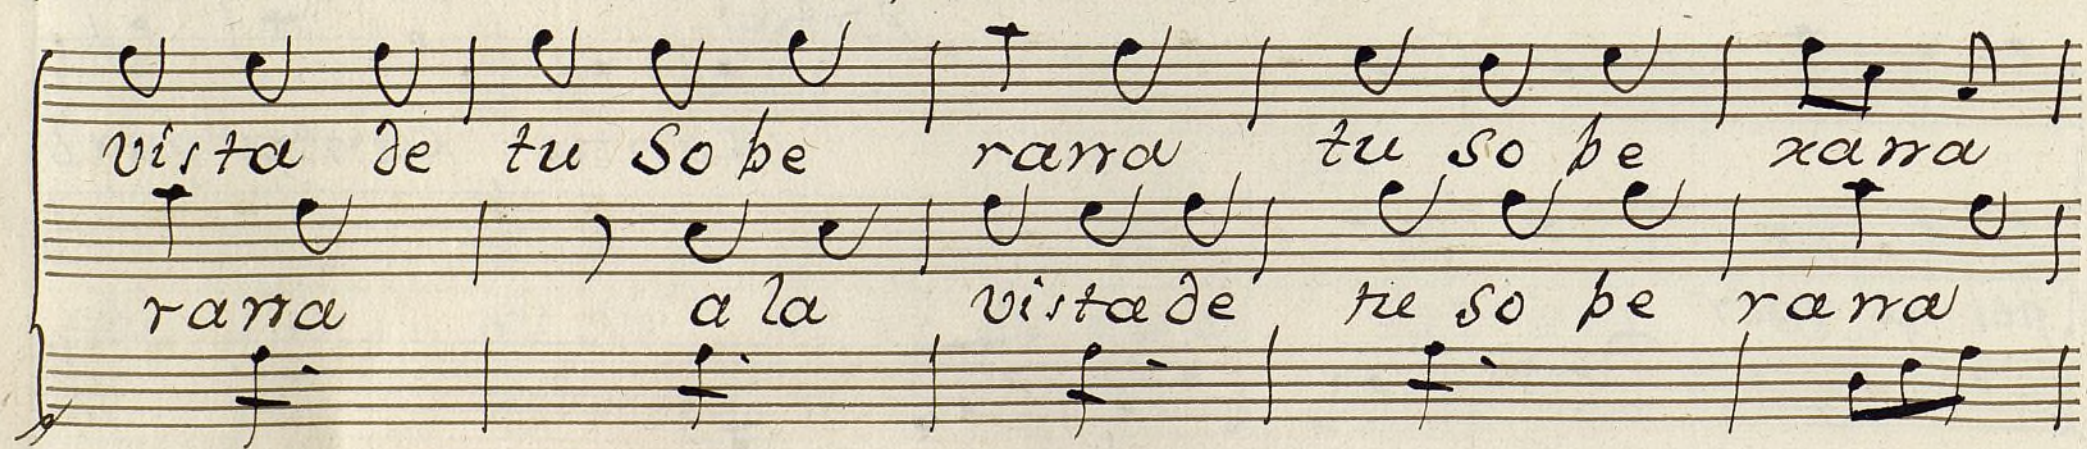 vista de tu sobe rana tu so be rana
rana a la vista de tu so be rana